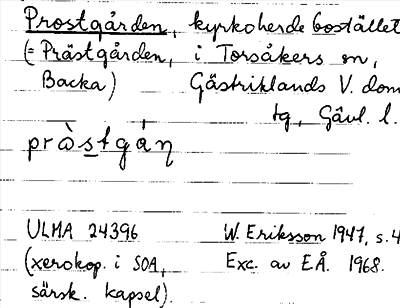 Prostgården, kyrkoherdebostället
(= Prästgården, i Torsåkers sn,
Backa) Gästriklands V. dom
tg, Gävl. l.
pròstgáṇ
ULMA 24396 W. Eriksson 1947, s. 4
(xerokop. i SOA, Exc. av EÅ. 1968.
särsk. kapsel).